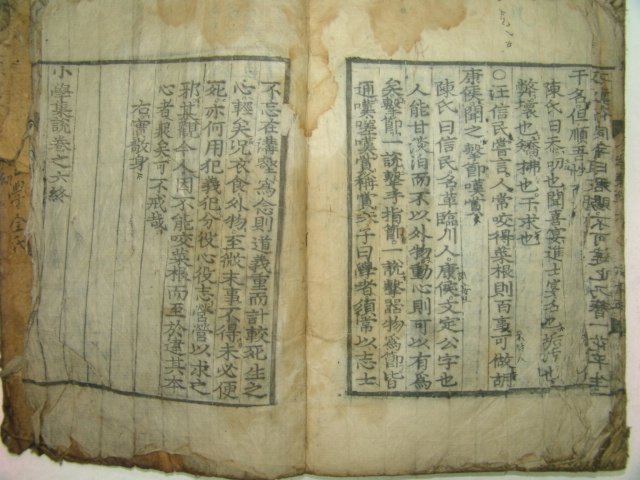 干名但順吾
陳氏曰忝叨也聞喜宴進士宴名也
弊壞也矯拂也干求也
○汪信民嘗言人常咬得菜根則百事可做胡
康侯聞之擊節嘆賞
陳氏曰信民名革臨川人康侯文定公字也
人能甘淡泊而不以外物動心則可以有爲
矣擊節一說擊手指節一說擊器物爲節皆
通嘆嗟嘆賞稱賞朱子曰學者須常以志士
不忘在溝壑爲念則道義重而計較死生之
心輕矣况衣食外物至微末事不得未必便
死亦何用犯義犯分役心役志營營以求之
耶某觀今人因不能咬菜根而至於違其本
心者衆矣可不戒哉
右實敬身
小學集說卷之六終